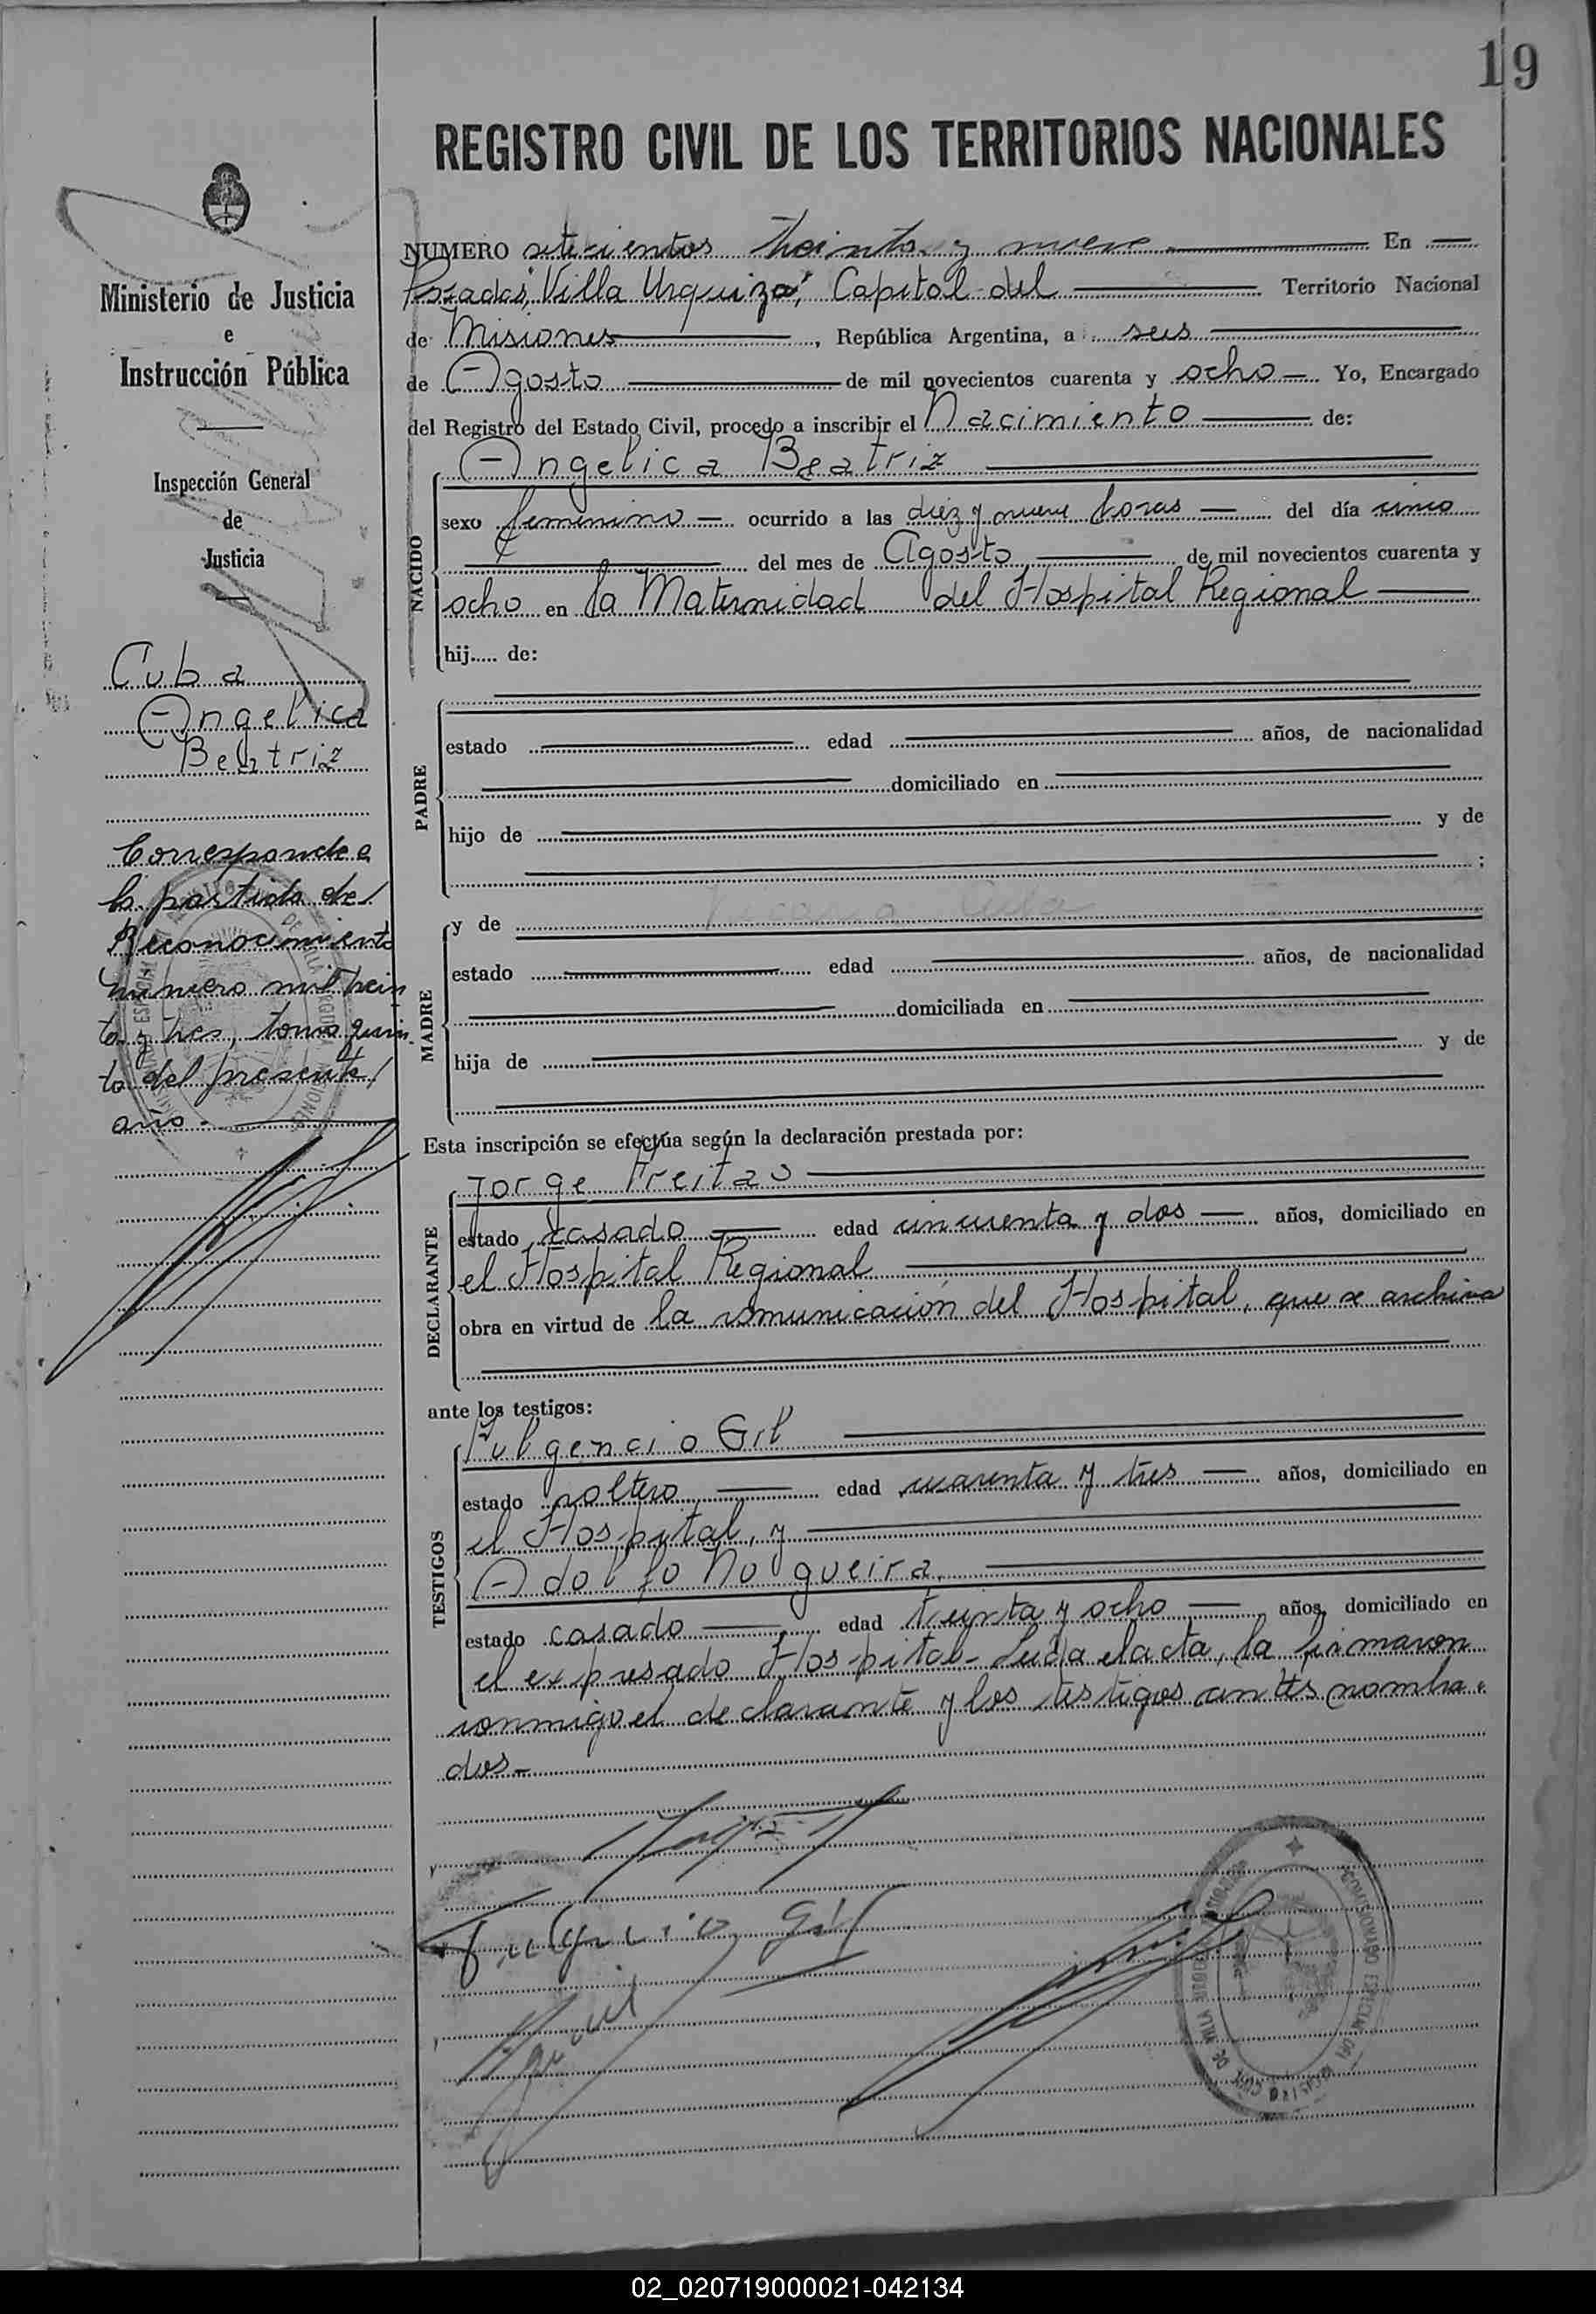 19
REGISTRO CIVIL DE LOS TERRITORIOS NACIONALES
Ministerio de Justicia
e
Instrucción Pública
Inspección General
de
Justicia
Cuba
Angelica
Beatriz
Corresponde a
la partida de
Reconocimiento
número mil trein
ta y tres, tomo quin
to del presente
año.-
NUMERO setecientos treinta y nueve En
Posadas, "Villa Urquiza", Capital del Territorio Nacional
de Misiones, República Argentina, a seis
de Agosto de mil novecientos cuarenta y ocho Yo, Encargado
del Registro del Estado Civil, procedo a inscribir el Nacimiento de:
NACIDO
Angelica Beatriz
sexo femenino ocurrido a las diez y nueve horas del día cinco
del mes de Agosto de mil novecientos cuarenta y
ocho en la Maternidad del Hospital Regional
hij..... de:
PADRE
estado edad años, de nacionalidad
domiciliado en
hijo de y de
;
MADRE
y de
estado edad años, de nacionalidad
domiciliada en
hija de y de
Esta inscripción se efectúa según la declaración prestada por:
DECLARANTE
Jorge Freitas
estado casado edad cincuenta y dos años, domiciliado en
el Hospital Regional
obra en virtud de la comunicación del Hospital, que se archiva
ante los testigos:
TESTIGOS
Fulgencio Gil
estado soltero edad cuarenta y tres años, domiciliado en
el Hospital, y
Adolfo Nogueira
estado casado edad treinta y ocho años, domiciliado en
el expresado Hospital- Leída el acta, la firmaron
conmigo el declarante y los testigos antes nombra-
dos-
Fulgencio Gil
COMISIONADO ESPECIAL DEL REGISTRO CIVIL DE VILLA URQUIZA MISIONES
02_020719000021-042134